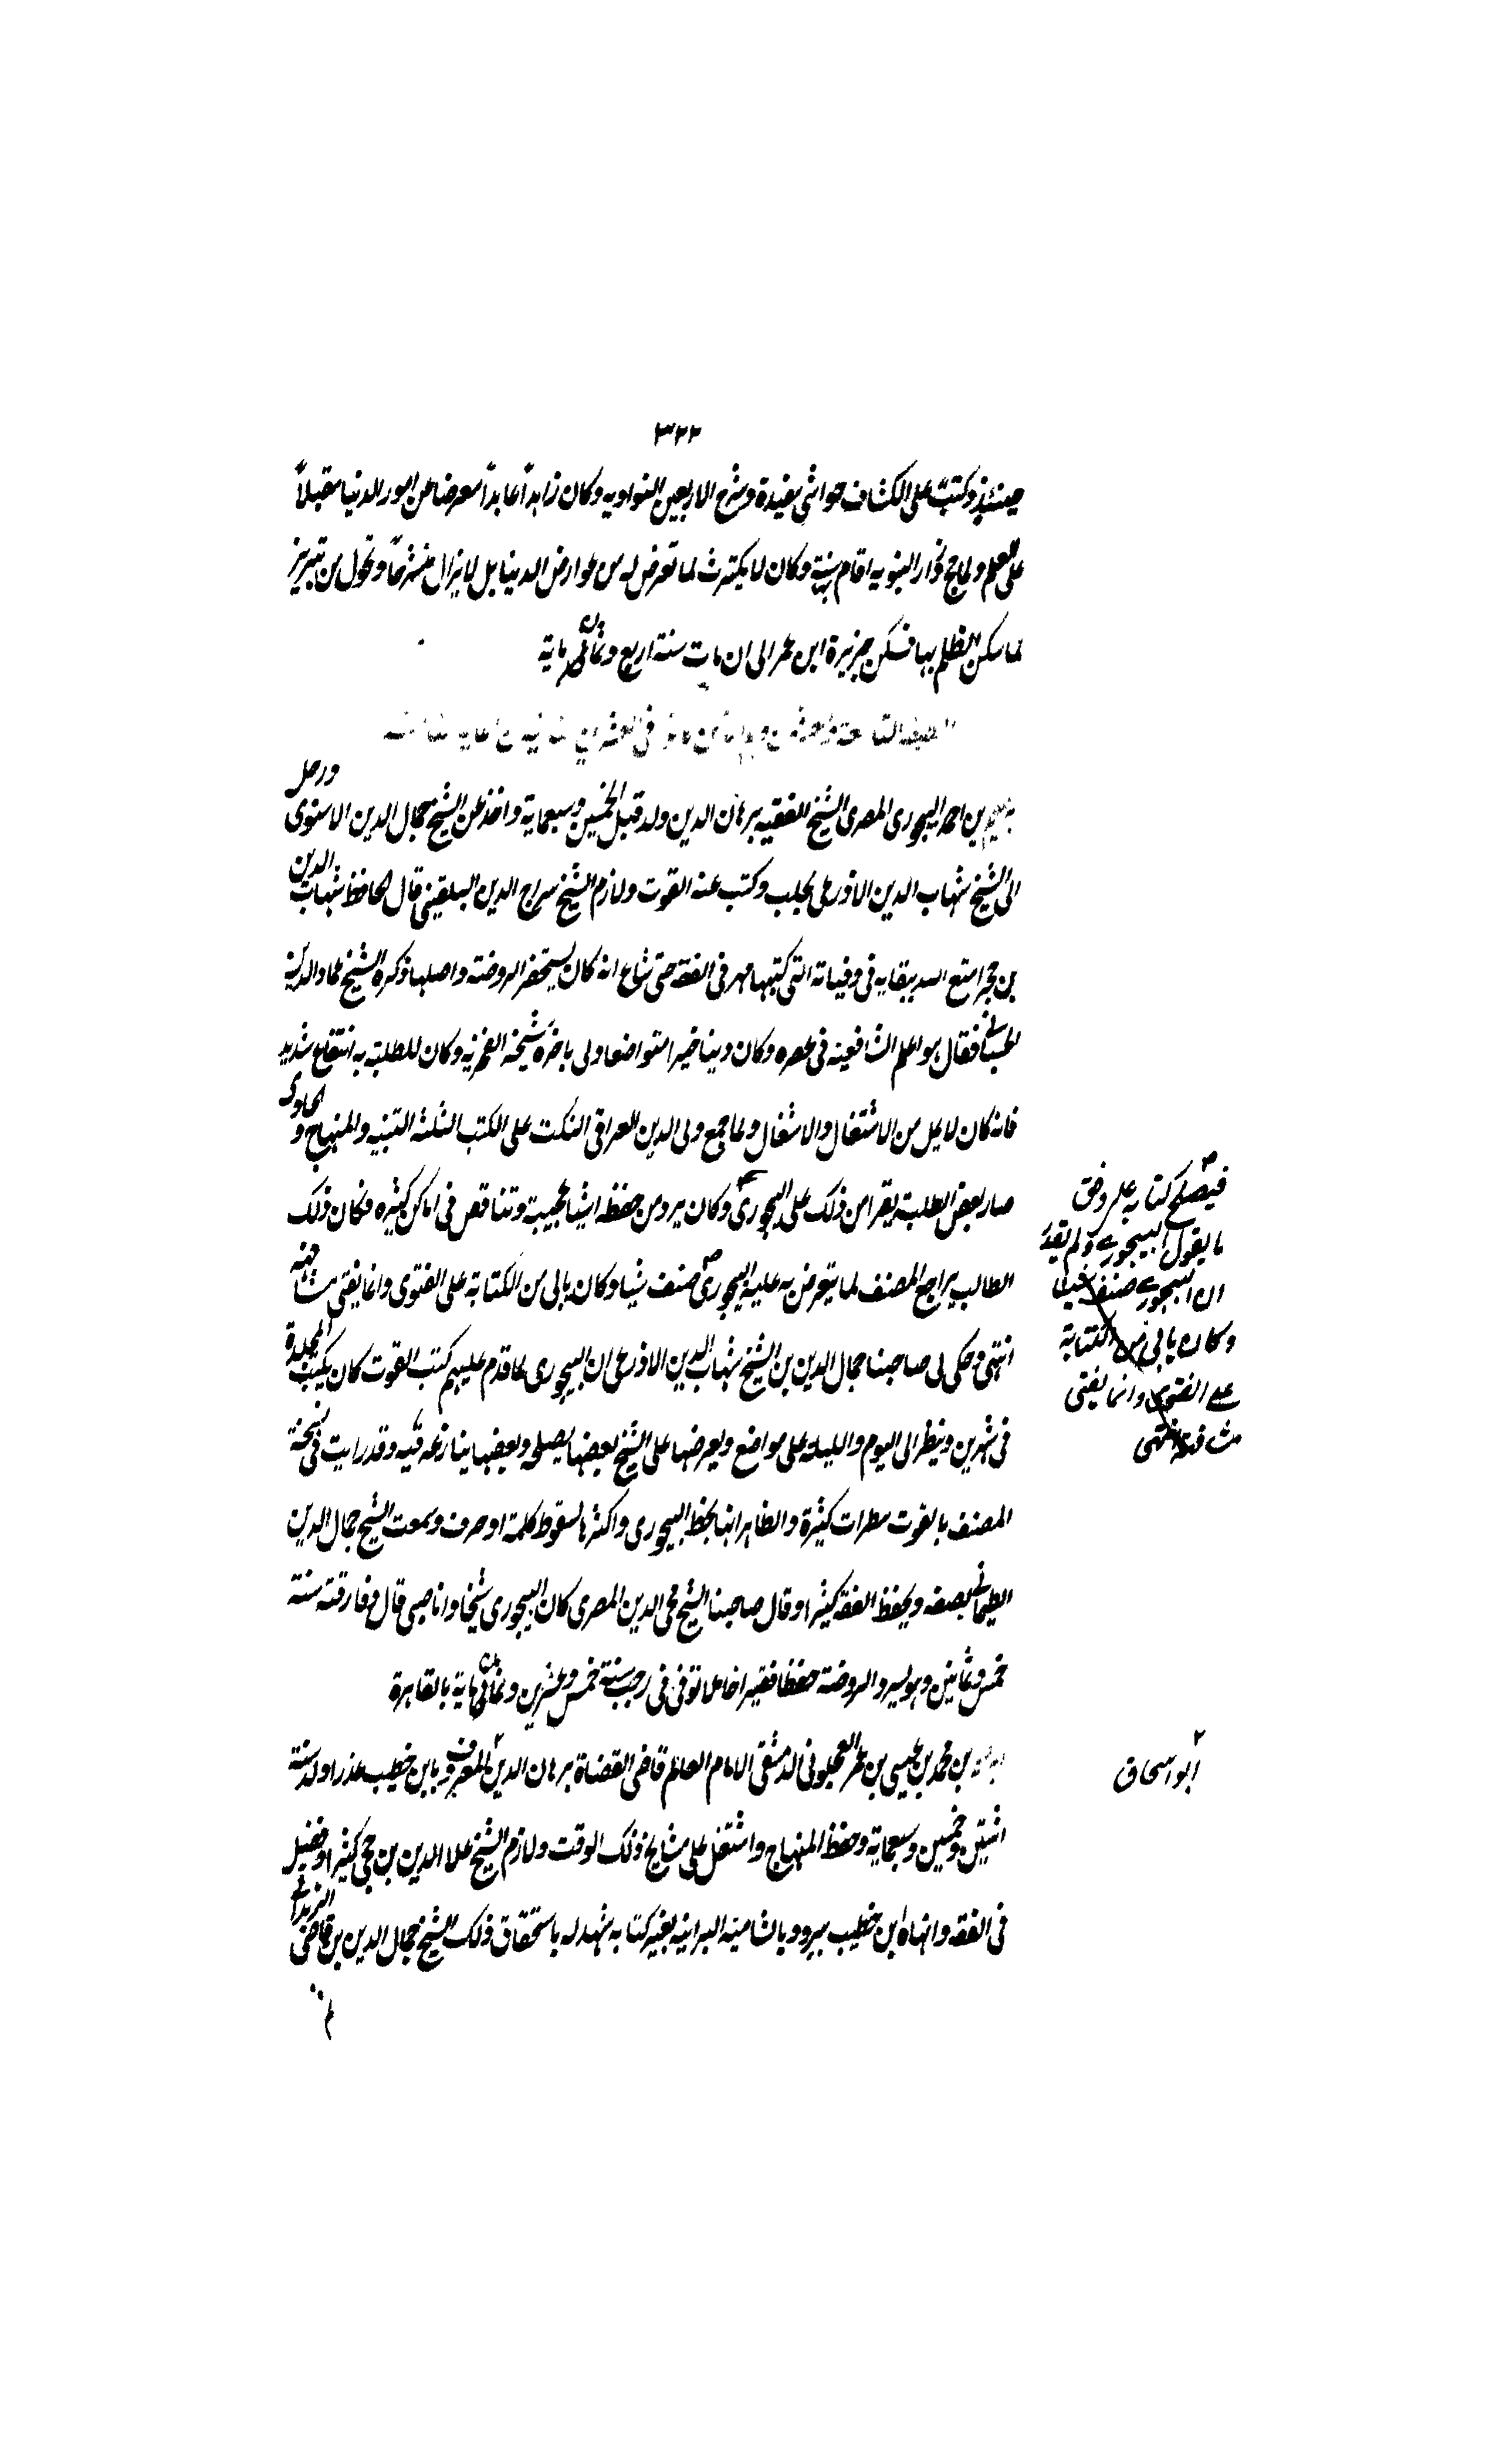 ٣٢٢
حينئذ وكتب على الكشاف حواشي مفيدة وشرح الاربعين النواويه وكان زاهداً عابداً معرضا عن امور الدنيا مقبلاً
على العلم ولما حج وزار النبويه اقام بها سنة وكان لا يكترث لما تعرض له من عوارض الدنيا بل لا يزال منشرحاً وتحول من تبريز
لما سكن الظلم بها فسكن جزيرة ابن عمر الى ان مات سنة اربع وثمان ماية
بن احمد البيجوري المصري الشيخ الفقيه برهان الدين ولد قبل الخمسين وسبعماية واخذ عن الشيخ جمال الدين الاسنوى ورحل
الى الشيخ شهاب الدين الاذرعي بحلب وكتب عنه القوت ولازم الشيخ سراج الدين البلقيني قال الحافظ شهاب الدين
بن حجر امتع الله ببقايه في وفياته التي كتبها مهر في الفقه حتى شاع انه كان يستحضر الروضة واصلها وذكره الشيخ عماد الدين
الحسباني فقال هو اعلم الشافعية في عصره وكان دينا خيرا متواضعا ولى باخرة مشيخة الفخرية وكان للطلبة به انتفاع شديد
فانه كان لا يمل من الاشتغال والاشغال ولما جمع ولى الدين العراقي النكت على الكتب الثلثة التنبيه والمنهاج والحاوى
صار بعض الطلبة يقرا من ذلك على البيجوري وكان يرد من حفظه اشيا عجيبة وتناقص في اماكن كثيره فكان ذلك
الطالب يراجع المصنف لما يتعرض به عليه البيجوري صنف شيا وكان يابى من الكتابة على الفتوى وانما يفتى مشافهة
انتهى وحكى لى صاحبنا جمال الدين بن الشيخ شهاب الدين الاذرعي ان البيجوري لما قدم عليهم كتب القوت كان يكتب المجلدة
في شهرين وينظر الى اليوم والليلة على مواضع ويعرضها على الشيخ بعضها يصلحه وبعضها ينازعه فيه وقد رايت في نسخة
المصنف بالقوت سطرات كثيرة والظاهر انها بخط البيجوري واكثرها لسقوط كلمة او حرف وسمعت الشيخ جمال الدين
الطيماني يصفه ويحفظ الفقه كثيرا وقال صاحبنا الشيخ محى الدين المصرى كان البيجوري شيخا وانا صبي قال وفارقته سنة
خمس وثمانين وهو يسرد الروضة حفظا فقيرا خاملا توفى في رجب سنة خمس وعشرين وثمان ماية بالقاهرة
بن محمد بن عيسى بن عمر العجلوني الدمشقي الامام العالم قاضي القضاة برهان الدين المعروف بابن خطيب عذرا ولد سنة
اثنتين وخمسين وسبعماية وحفظ المنهاج واشتغل على مشايخ ذلك الوقت ولازم الشيخ علا الدين بن حجى كثيرا وفضيل
في الفقه وانهاه ابن خطيب يبرود بالشامية البرانية بغير كتابه شهد له باستحقاق ذلك الشيخ جمال الدين بن قاضي الزبداني
فيصلح كتابه على وفق
ما يقول البيجوري ولم يقدر
ان البيجوري صنف شيا
وكان يابى من الكتابة
على الفتوى وانما يفتى
مشافهة انتهى
ابو اسحاق